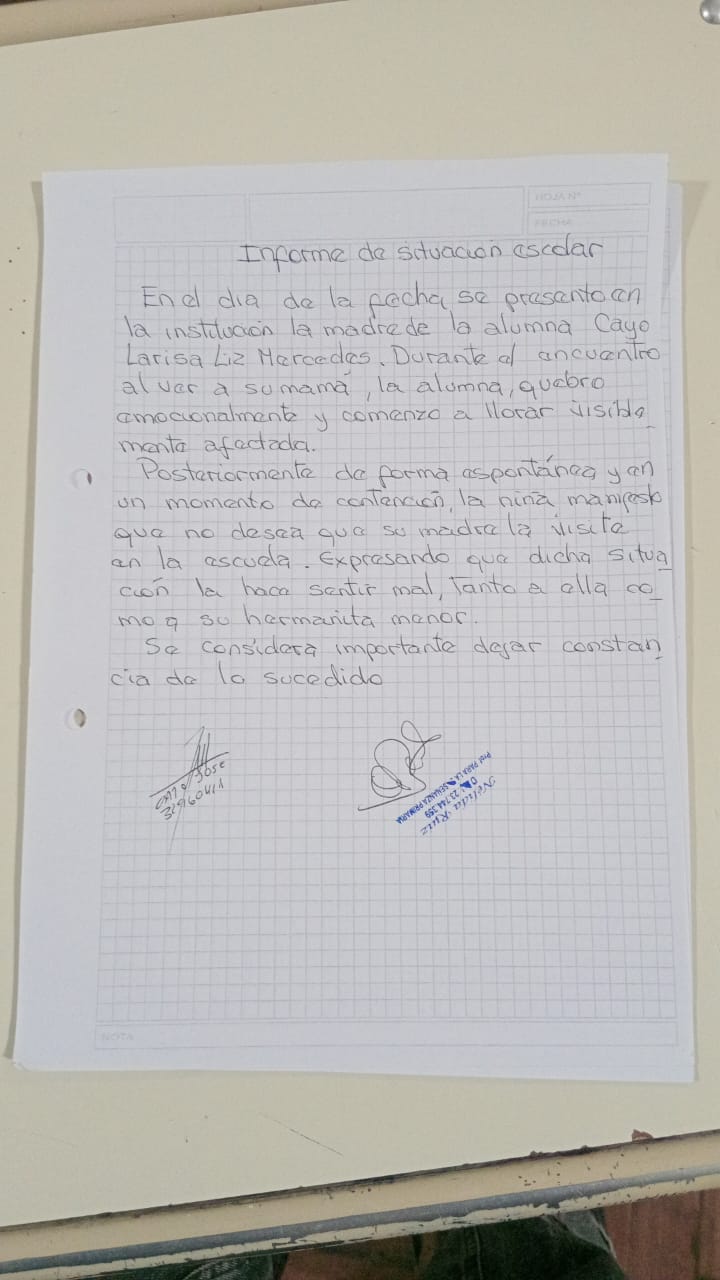 HOJA N°
FECHA
Informe de situación escolar
En el día de la fecha, se presento en
la institución la madre de la alumna Cayo
Larisa Liz Mercedes. Durante el encuentro
al ver a su mamá, la alumna, quebro
emocionalmente y comenzo a llorar visible
mente afectada.
Posteriormente de forma espontánea y en
un momento de contención, la niña manifesto
que no desea que su madre la visite
en la escuela. Expresando que dicha situa
ción la hace sentir mal, Tanto a ella co_
mo a su hermanita menor.
Se considera importante dejar constan
cia de lo sucedido
José
Nelida Ruiz
23.744.359
PROF. PARA LA ENSEÑANZA PRIMARIA
NOTA